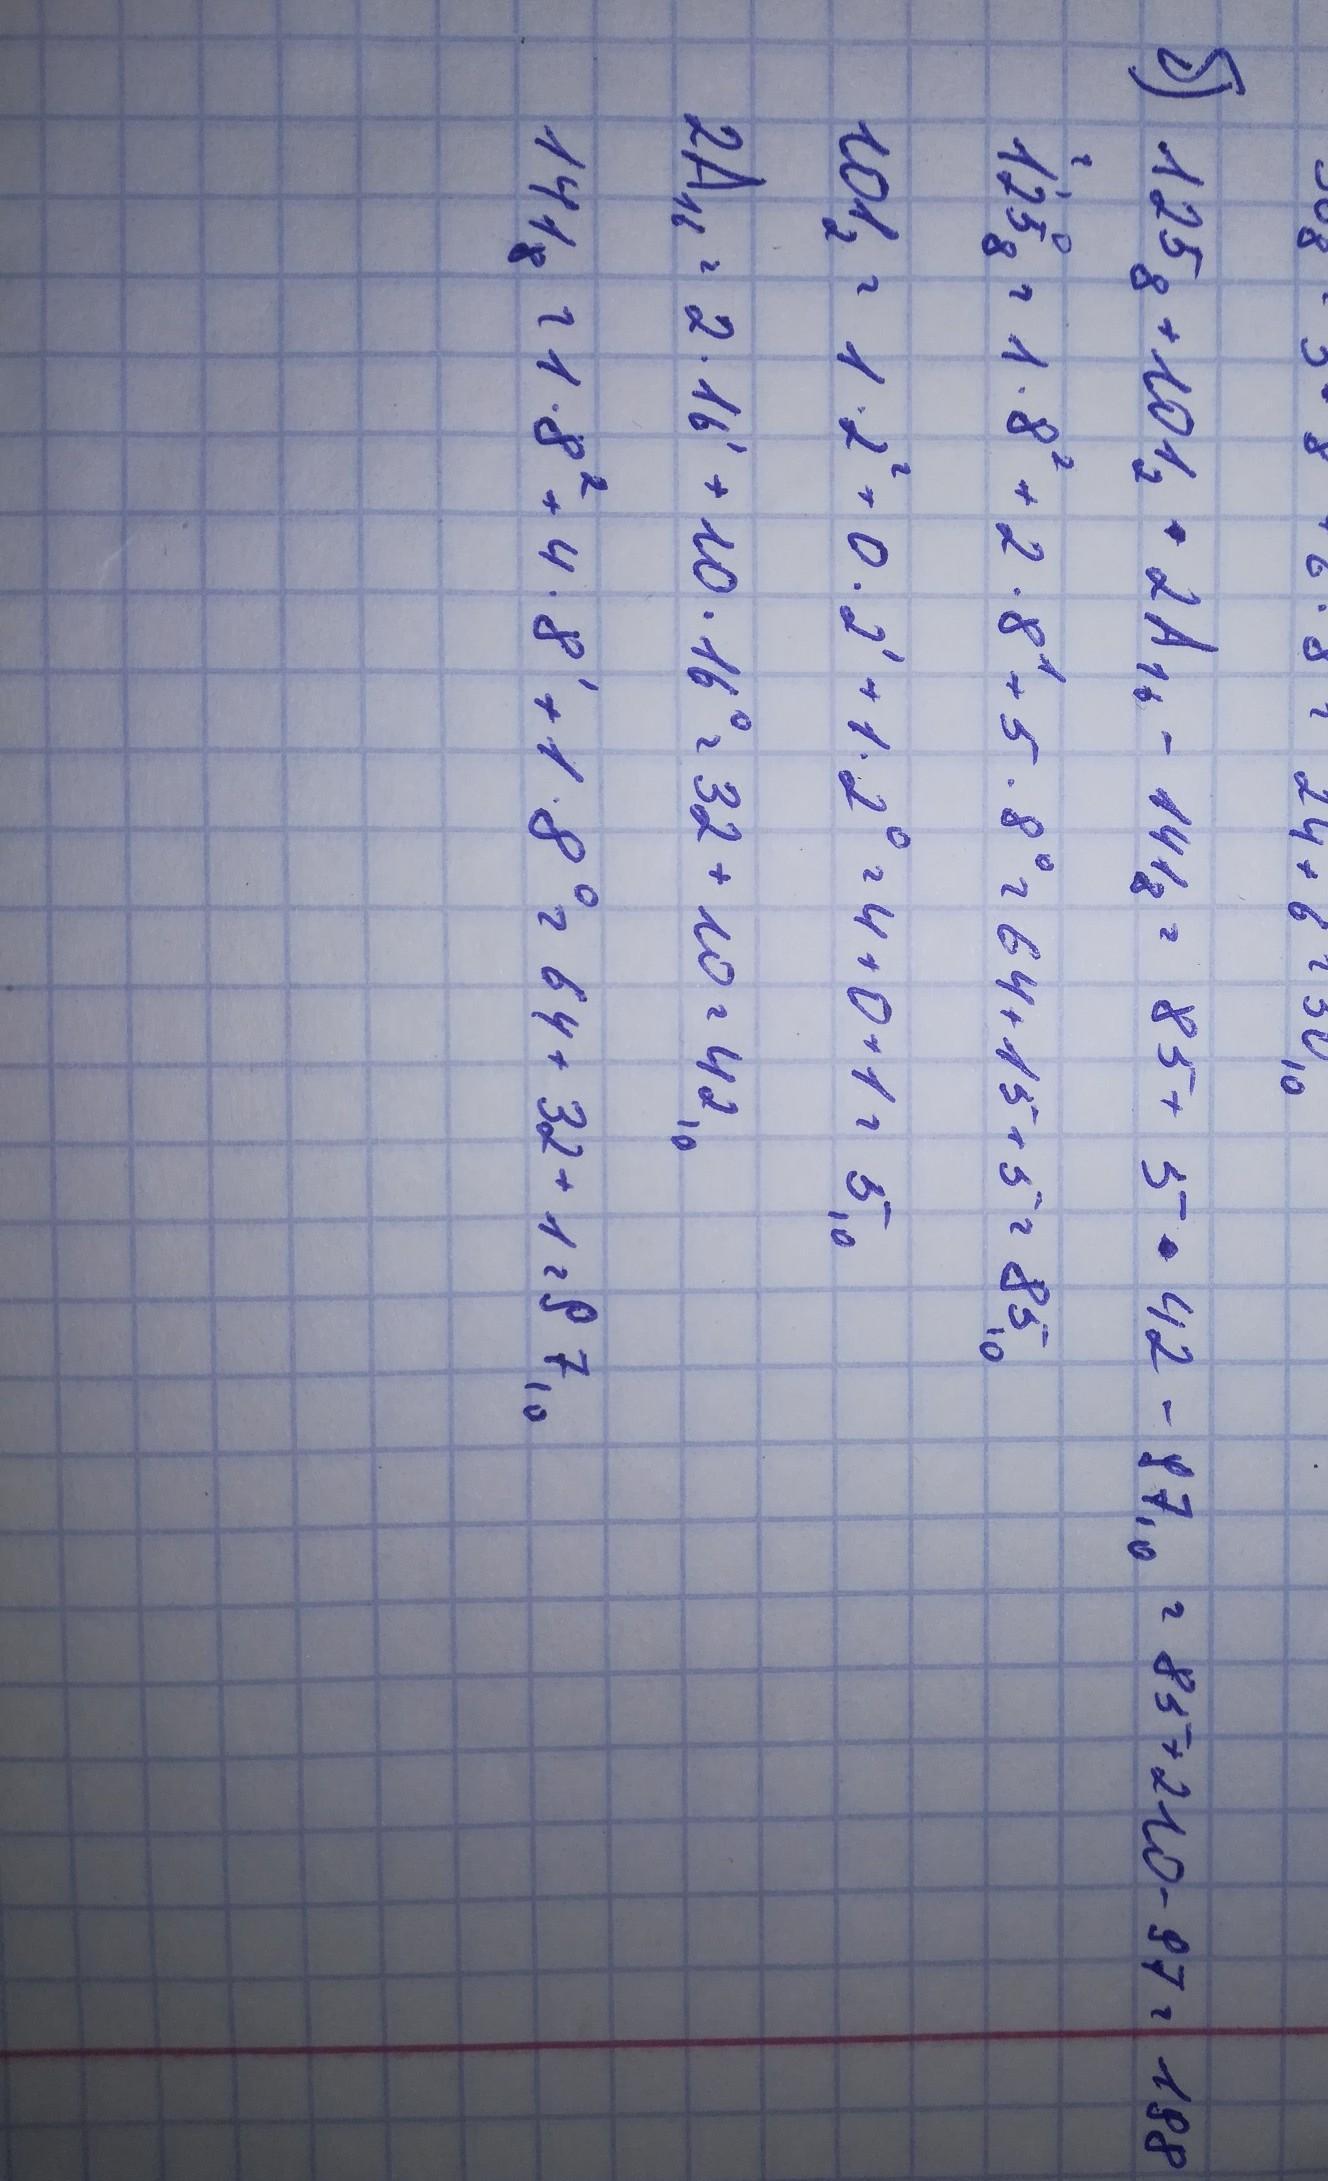 б) 125₈ + 101₂ • 2A₁₆ - 141₈ = 85 + 5 • 42 - 97₁₀ = 85 + 210 - 97 = 198
1²2¹5⁰₈ = 1 · 8² + 2 · 8¹ + 5 · 8⁰ = 64 + 15 + 5 = 85₁₀
101₂ = 1 · 2² + 0 · 2¹ + 1 · 2⁰ = 4 + 0 + 1 = 5₁₀
2A₁₆ = 2 · 16¹ + 10 · 16⁰ = 32 + 10 = 42₁₀
141₈ = 1 · 8² + 4 · 8¹ + 1 · 8⁰ = 64 + 32 + 1 = 97₁₀